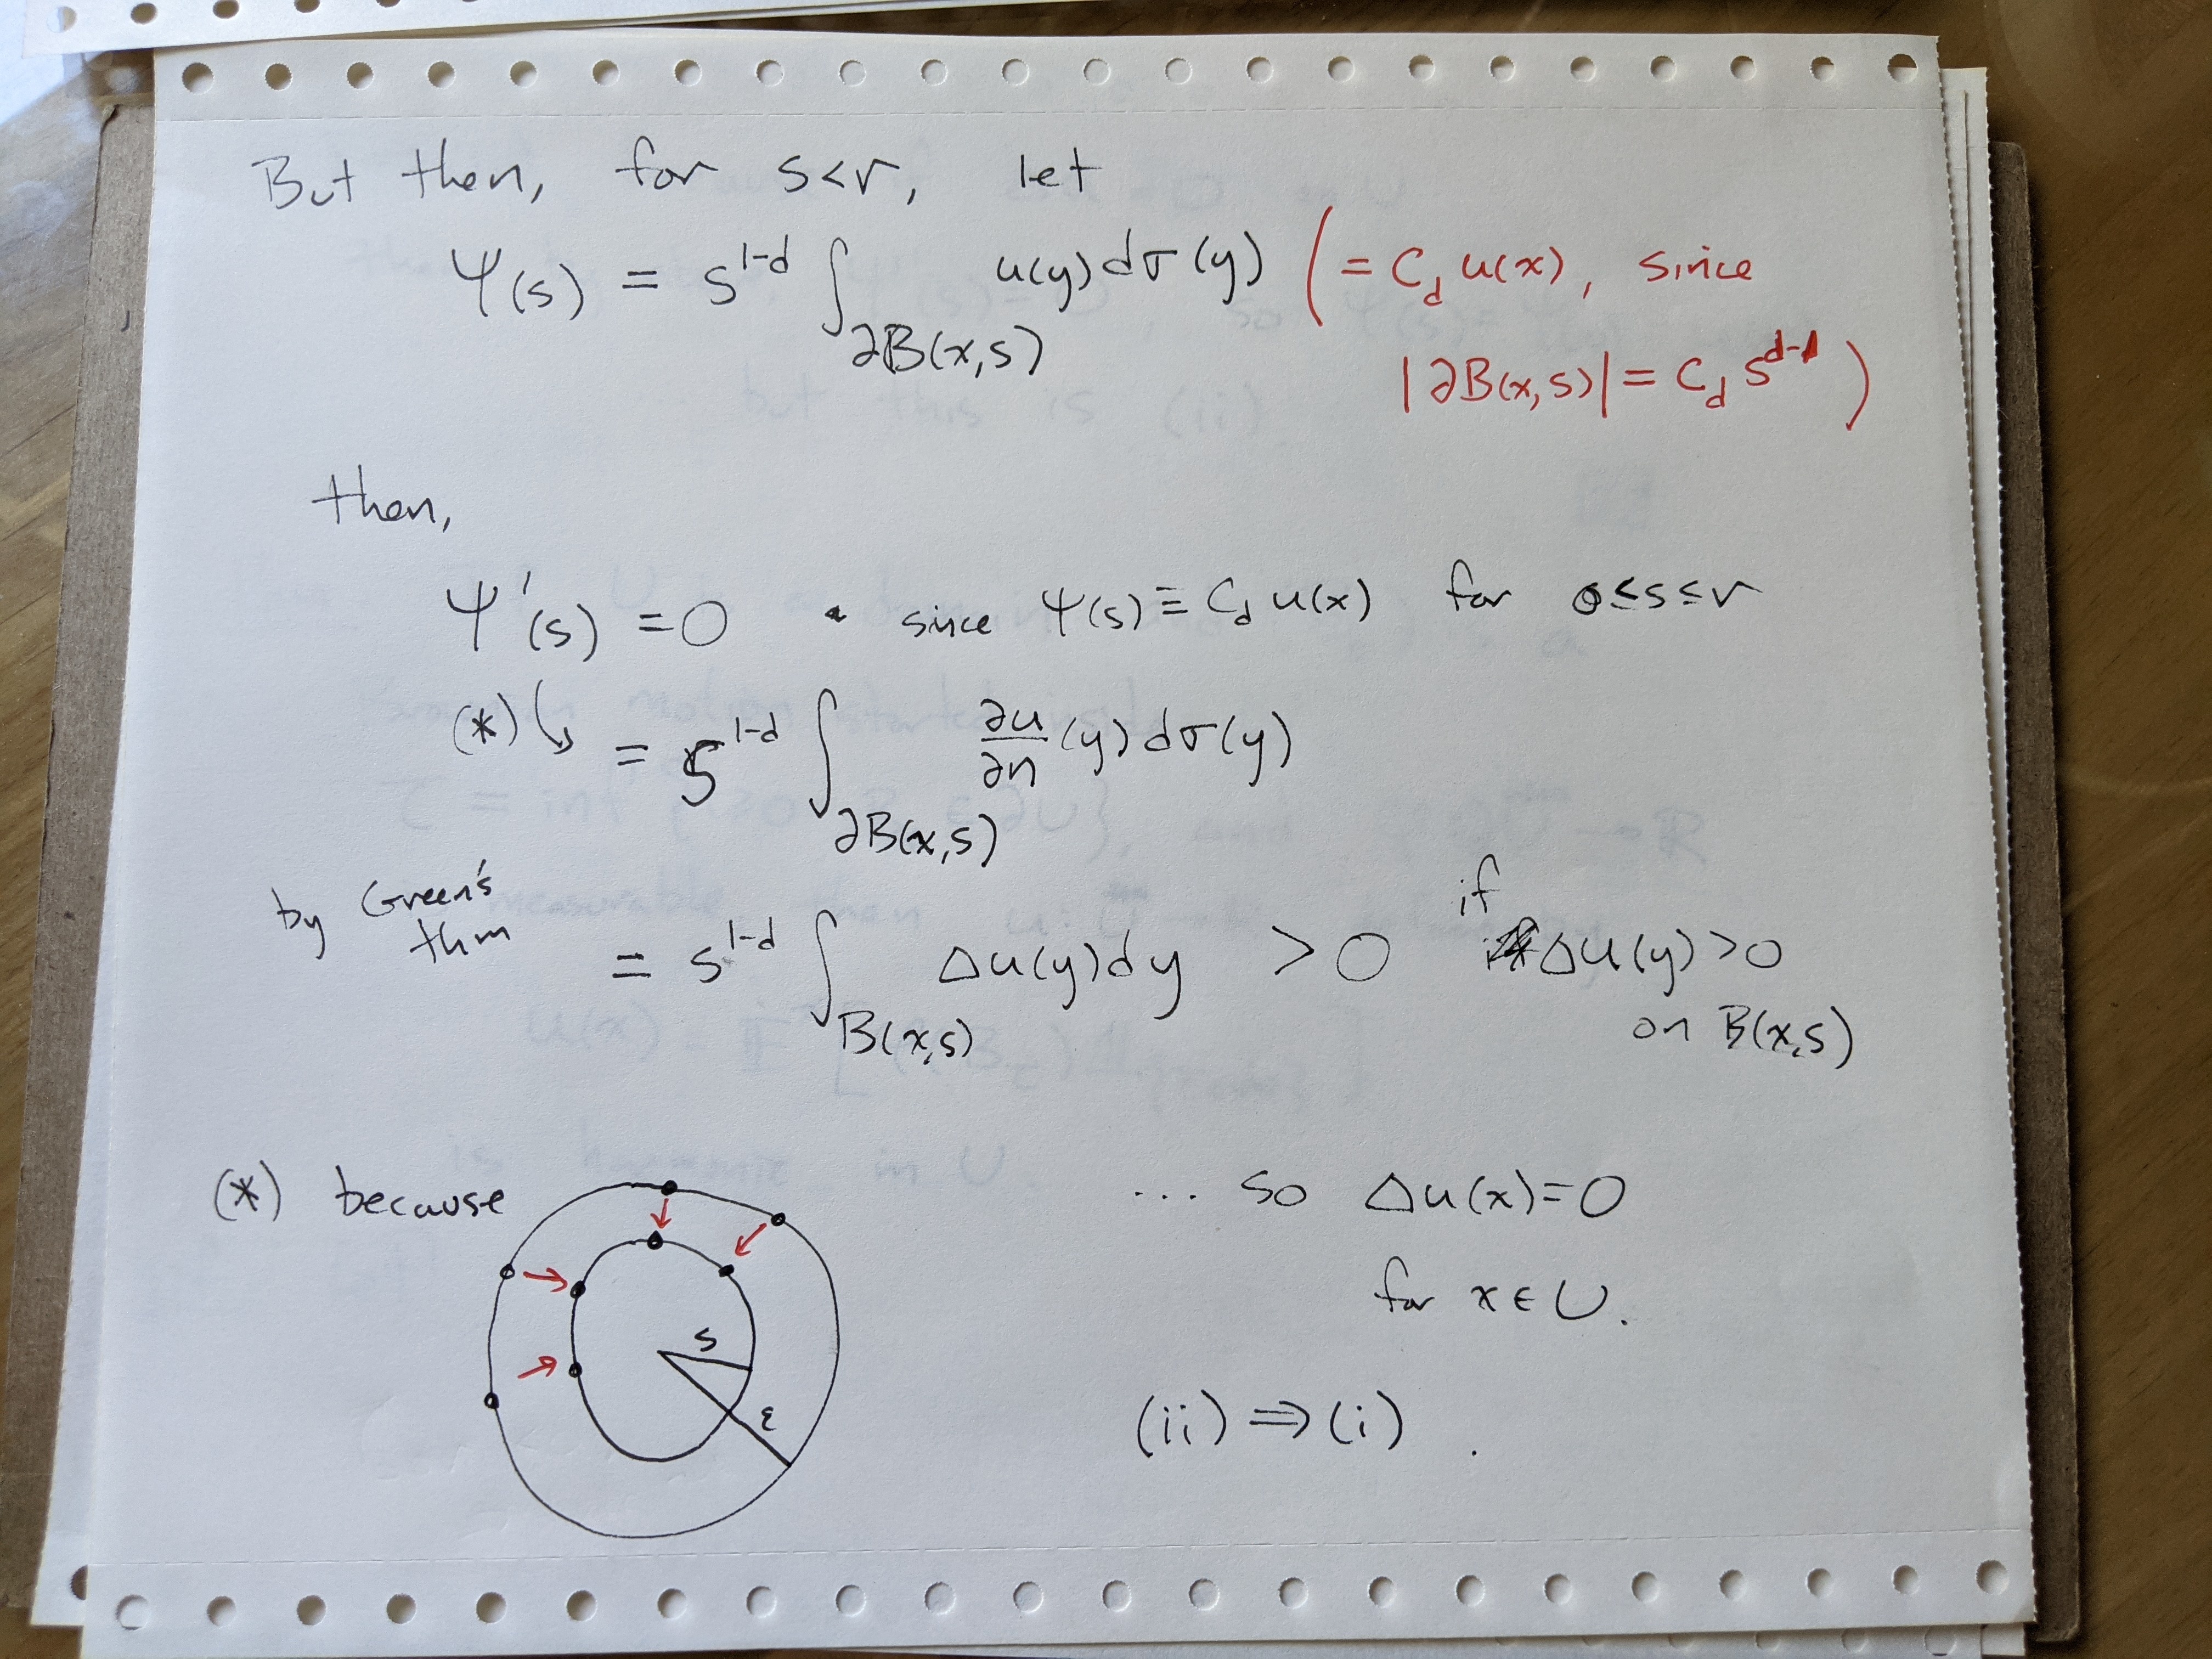 But then, for s<r, let
Ψ(s) = s^{1-d} ∫_{∂B(x,s)} u(y)dσ(y) (= C_d u(x), since
|∂B(x,s)| = C_d s^{d-1})
then,
Ψ'(s) = 0 since Ψ(s) ≡ C_d u(x) for 0≤s≤r
(*) = s^{1-d} ∫_{∂B(x,s)} ∂u/∂n (y) dσ(y)
by Green's thm
= s^{1-d} ∫_{B(x,s)} Δu(y)dy > 0 if Δu(y)>0
on B(x,s)
(*) because
s
ε
... so Δu(x)=0
for x∈U.
(ii) ⇒ (i).